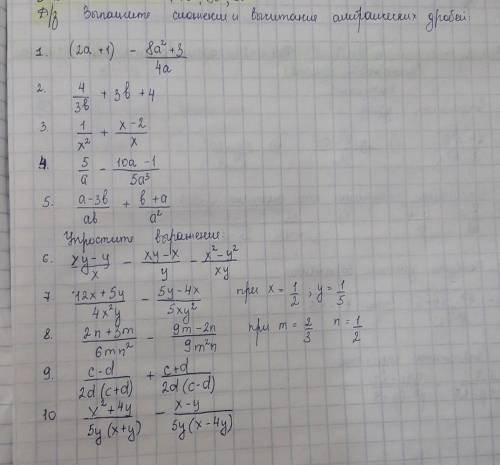 Д/з Выполните сложение и вычитание алгебраических дробей:
1. (2a + 1) - (8a² + 3)/(4a)
2. 4/(3b) + 3b + 4
3. 1/x² + (x - 2)/x
4. 5/a - (10a - 1)/(5a³)
5. (a - 3b)/(ab) + (b + a)/a²
Упростите выражение:
6. (xy - y)/x - (xy - x)/y - (x² - y²)/(xy)
7. (12x + 5y)/(4x²y) - (5y - 4x)/(5xy²) при x = 1/2; y = 1/5
8. (2n + 3m)/(6mn²) - (9m - 2n)/(9m²n) при m = 2/3 n = 1/2
9. (c - d)/(2d(c + d)) + (c + d)/(2d(c - d))
10 (x² + 4y)/(5y(x + y)) - (x - y)/(5y(x - 4y))